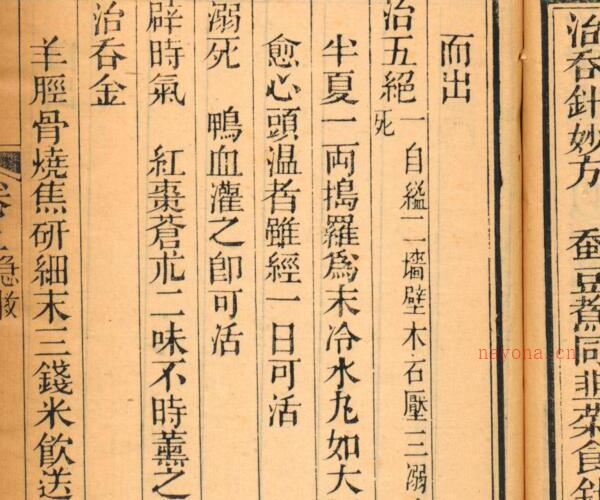 治吞針妙方　蚕豆煮同韭菜食針
而出
治五絕　一自縊二墻壁木石壓三溺
死
半夏一兩搗羅爲末冷水丸如大
愈心頭温者雖經一日可活
溺死　鴨血灌之卽可活
辟時氣　紅棗蒼朮二味不時薰之
治吞金
羊脛骨燒焦研細末三錢米飲送
急救
nayona.cn